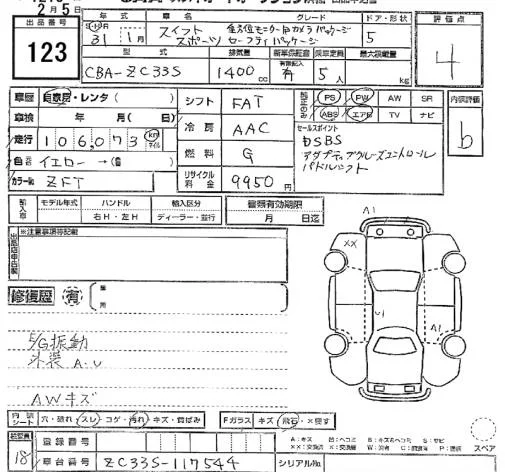 2月5日
出品番号
123
年式
車名
グレード
ドア・形状
31年 1月
スイフト
スポーツ
全方位モニター用カメラパッケージ
セーフティパッケージ
5
評価点
4
型式
排気量
新車保証書
乗車定員
最大積載量
CBA-ZC33S
1400cc
有
5人
kg
車歴 自家用・レンタ( )
車検 年 月( 日)
走行 106,073 km マイル
色 イエロー →( )
カラーNo. ZFT
シフト FAT
冷房 AAC
燃料 G
リサイクル料金 9950円
純正のみ
PS PW AW SR
ABS エアB TV ナビ
内装評価
b
セールスポイント
DSBS
アダプティブクルーズコントロール
パドルシフト
輸入車
モデル年式 ハンドル 輸入区分
右H・左H ディーラー・並行
書類有効期限
月 日迄
出品店申告欄
※注意事項等記載
修復歴 有
箇所
E/G振動
外装 A・U
AWキズ
A1
XX
U1
A1
内装シート 穴・破れ・スレ・コゲ・汚れ・キズ・歯ばみ
Fガラス キズ・飛石・×要す
18
登録番号
車台番号 ZC33S-117544
シリアルNo.
A:キズ